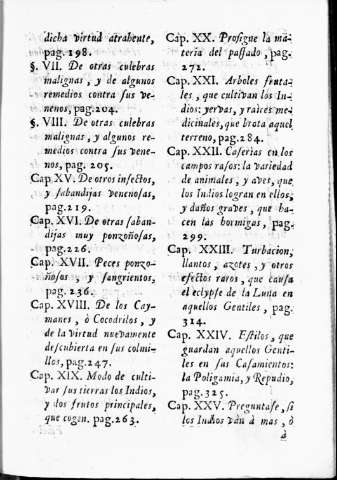 dicha virtud atrahente,
pag. 198.
§. VII. De otras culebras
malignas, y de algunos
remedios contra sus ve-
nenos, pag. 204.
§. VIII. De otras culebras
malignas, y algunos re-
medios contra sus vene-
nos, pag. 205.
Cap. XV. De otros insectos,
y sabandijas venenosas,
pag. 219.
Cap. XVI. De otras saban-
dijas muy ponzoñosas,
pag. 226.
Cap. XVII. Peces ponzo-
ñosos, y sangrientos,
pag. 236.
Cap. XVIII. De los Cay-
manes, ò Cocodrilos, y
de la virtud nuevamente
descubierta en sus colmi-
llos, pag. 247.
Cap. XIX. Modo de culti-
var sus tierras los Indios,
y los frutos principales,
que cogen. pag. 263.
Cap. XX. Prosigue la ma-
teria del passado, pag.
272.
Cap. XXI. Arboles fruta-
les, que cultivan los In-
dios: yervas, y raices me-
dicinales, que brota aquel
terreno, pag. 284.
Cap. XXII. Caserias en los
campos rasos: la variedad
de animales, y aves, que
los Indios logran en ellos,
y daños graves, que ha-
cen las hormigas, pag.
299.
Cap. XXIII. Turbacion,
llantos, azotes, y otros
efectos raros, que causa
el eclypse de la Luna en
aquellos Gentiles, pag.
314.
Cap. XXIV. Estilos, que
guardan aquellos Genti-
les en sus Casamientos:
la Poligamia, y Repudio,
pag. 325.
Cap. XXV. Preguntase, si
los Indios van à mas, ò
à